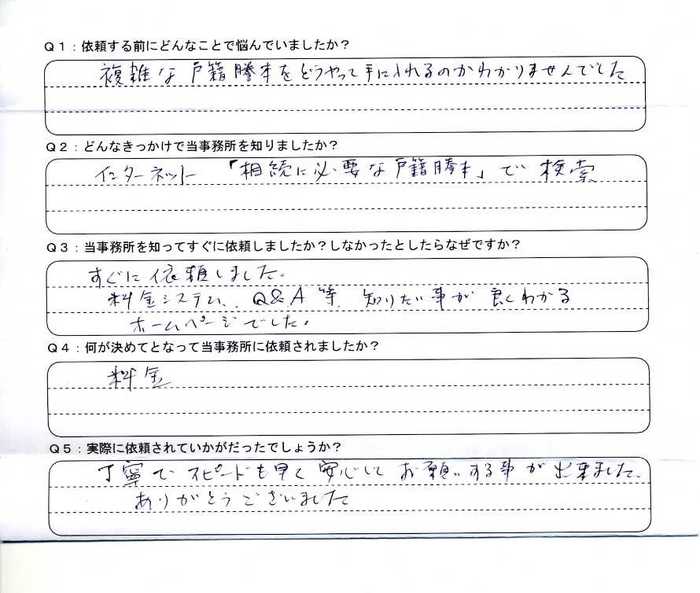 Q1：依頼する前にどんなことで悩んでいましたか？
複雑な戸籍謄本をどうやって手に入れるのかわかりませんでした
Q2：どんなきっかけで当事務所を知りましたか？
インターネット 「相続に必要な戸籍謄本」で 検索
Q3：当事務所を知ってすぐに依頼しましたか？しなかったとしたらなぜですか？
すぐに依頼しました。
料金システム、Q&A等、知りたい事が良くわかる
ホームページでした。
Q4：何が決めてとなって当事務所に依頼されましたか？
料金
Q5：実際に依頼されていかがだったでしょうか？
丁寧でスピードも早く安心してお願いする事が出来ました。
ありがとうございました